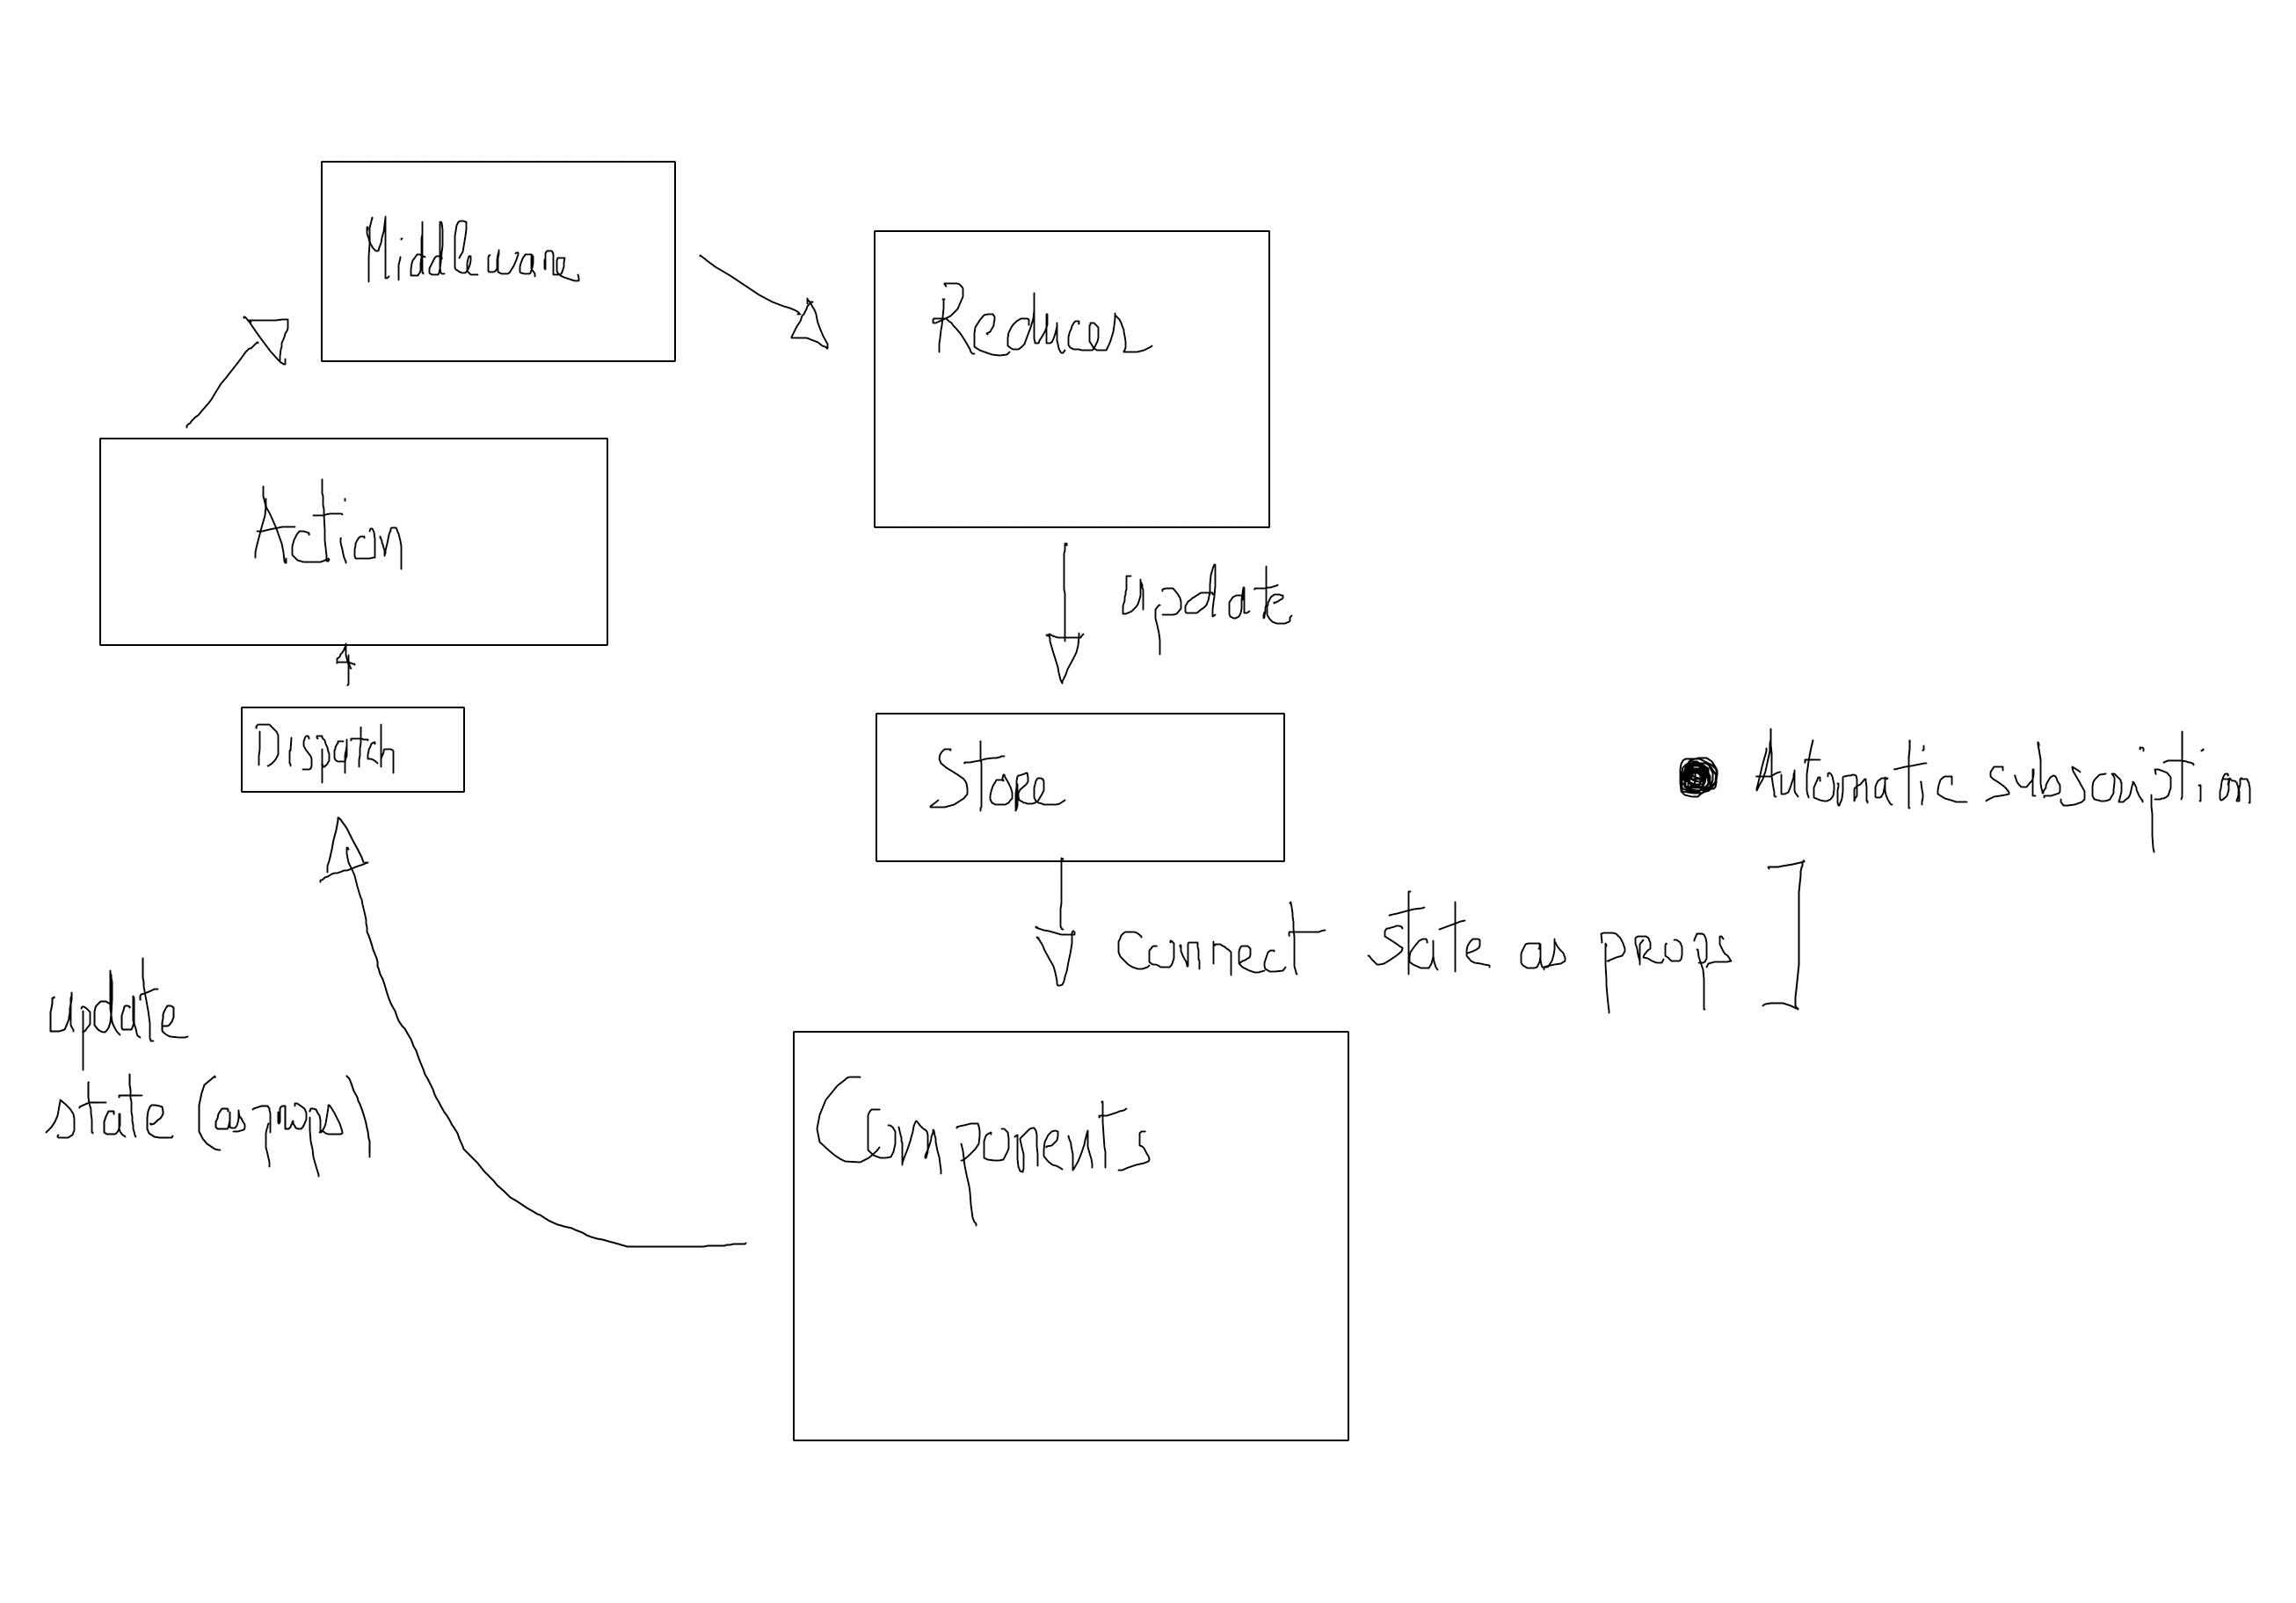 Middleware
Reducer
Action
update
Dispatch
Store
Automatic subscription
connect state as props ]
update
state (as props)
Components